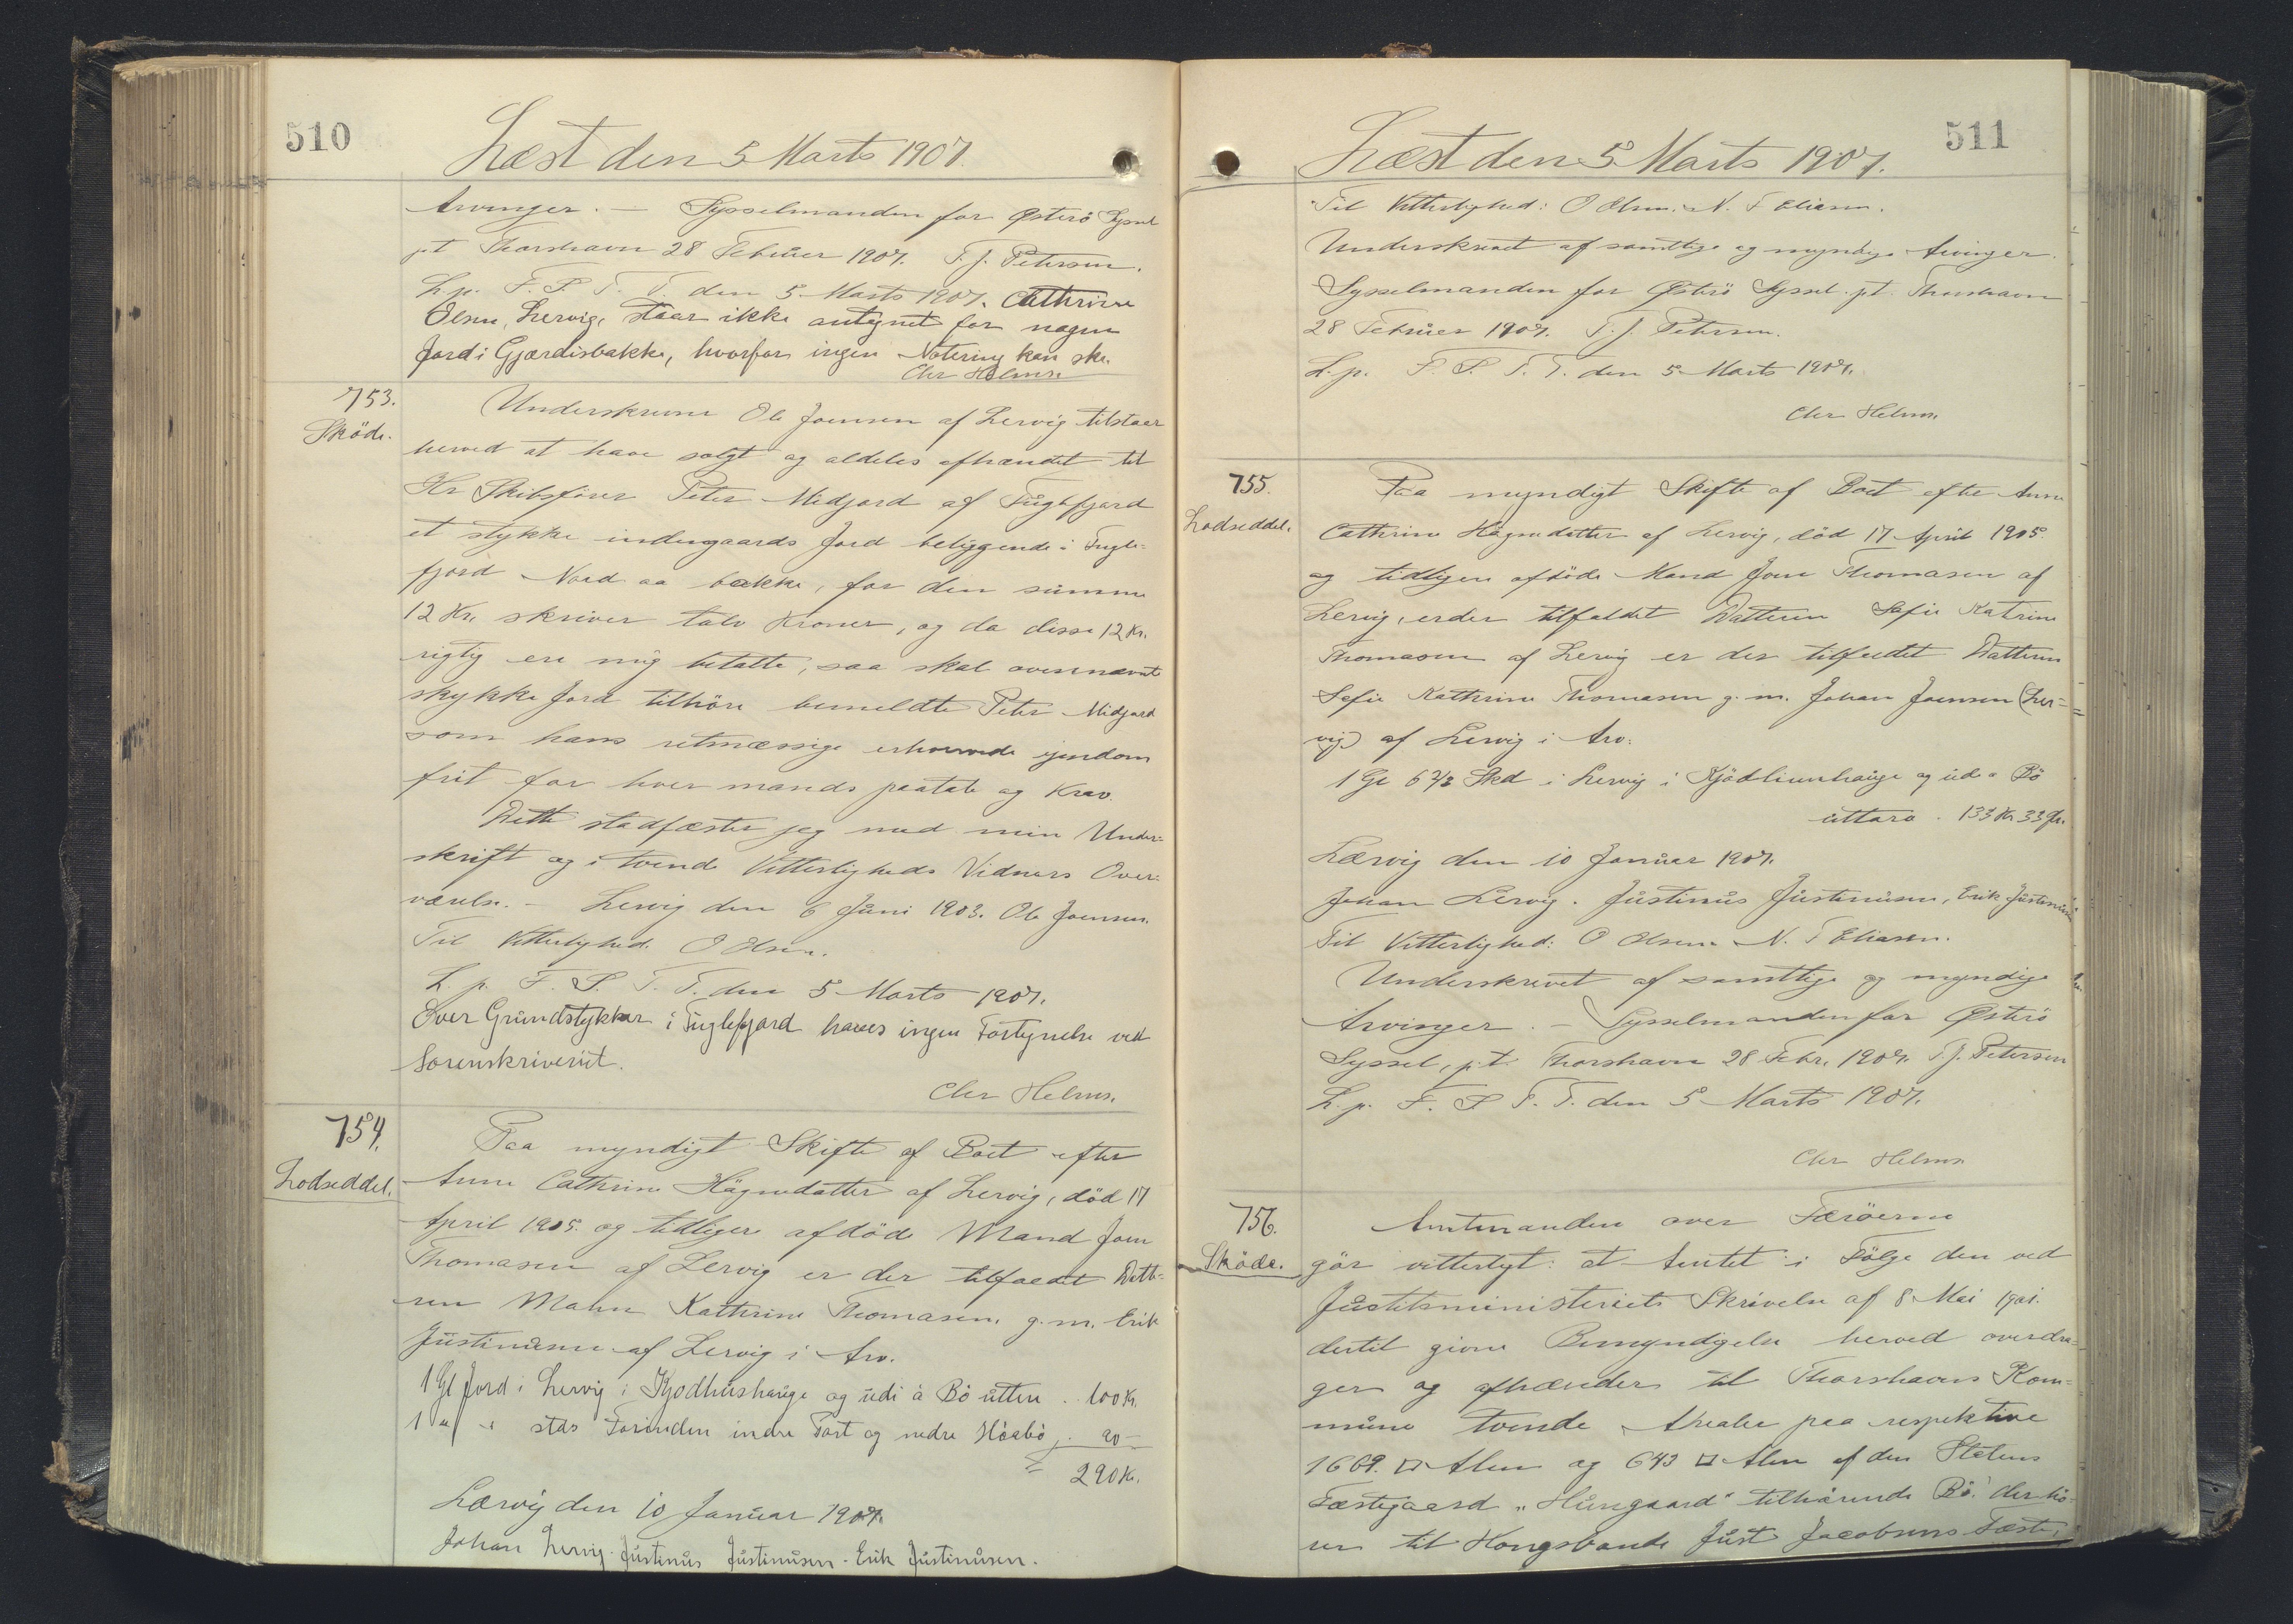 510
Læst den 5 Marts 1907.
Arvinger. — Sysselmanden for Østerö Syssel
p.t. Thorshavn 28 Februer 1907. T. J. Petersen.
L. p. F. S. T. T. den 5 Marts 1907. Cathrine
Olsen, Lervig, staar ikke antegnet for nogen
Jord i Gjærdisbakke, hvorfor ingen Notering kan ske.
Chr Helms.
753.
Sköde.
Underskrevne Ole Joensen af Lervig tilstaar
herved at have solgt og aldeles afhændet til
Hr Skibsförer Peter Midjord af Fuglefjord
et stykke indengaards Jord beliggende i Fugle-
fjord Nord aa bakke, for den summe
12 Kr. skriver tolv Kroner, og da disse 12 Kr.
rigtig ere mig betalte, saa skal ovennævnte
stykke Jord tilhöre bemeldte Peter Midjord
som hans retmæssige erhvervede ejendom
frit for hver mands paatale og Krav.
Dette stadfæster jeg med min Under-
skrift og i tvende Vitterligheds Vidners Over-
værelse. — Lervig den 6 Juni 1903. Ole Joensen.
Til Vitterlighed. O Olsen.
L. p. F. S. T. T. den 5 Marts 1907.
Over Grundstykker i Fuglefjord haves ingen Fortegnelse ved
Sorenskriveriet.
Chr Helms.
754.
Lodseddel.
Paa myndigt Skifte af Boet efter
Anne Cathrine Högnedatter af Lervig, död 17
April 1905. og tidliger afdöde Mand Joen
Thomasen af Lervig er der tilfaldt Datte-
ren Mahn Kathrine Thomasen. g. m. Erik
Justinusen af Lervig i Arv.
1 Gl Jord i Lervig i Kjodhushauge og udi á Bö utten . . 100 Kr.
1 " " stás Forinden indre Fort og nedre Höabö . 90 –
290 Kr.
Lærvig den 10 Januar 1907.
Johan Lervig. Justinus Justinusen. Erik Justinusen.
511
Læst den 5 Marts 1907.
Til Vitterlighed: O Olsen. N. T Eliasen.
Underskrevet af samtlige og myndige Arvinger.
Sysselmanden for Østerö Syssel. p.t. Thorshavn
28 Februer 1907. T. J. Petersen.
L. p. F. S. T. T. den 5 Marts 1907.
Chr Helms.
755.
Lodseddel.
Paa myndigt Skifte af Boet efter Anne
Cathrine Högnedatter af Lervig, död 17 April 1905.
og tidligere afdöde Mand Joen Thomasen af
Lervig, er der tilfaldet Datteren Sofie Katrine
Thomasen af Lervig er der tilfaldet Datteren
Sofie Kathrine Thomasen g. m. Johan Joensen (Ler-
vig) af Lervig i Arv:
1 Gl 6 2/3 Skd i Lervig i og ud a Bö
uttara . 133 Kr. 33 Ør.
Lærvig den 10 Januar 1907.
Johan Lervig. Justinus Justinusen, Erik Justinusen
Til Vitterlighed: O Olsen. N. T Eliasen.
Underskrevet af samtlige og myndige
Arvinger. — Sysselmanden for Østerö
Syssel, p.t. Thorshavn 28 Febr. 1907. T. J. Petersen
L. p. F. S T. T. den 5 Marts 1907.
Chr Helms
756.
Sköde.
Amtmanden over Færöerne
gör vitterligt: at Amtet i Fölge den ved
Justitsministeriets Skrivelse af 8 Mai 1901.
dertil givne Bemyndigelse herved overdra-
ger og afhænder til Thorshavns Kom-
mune tvende Arealer paa respektive
1669. □ Alen og 643 □ Alen af den Statens
Fæstegaard "Húsgaard" tilhörende Bö. der hö-
rer til Kongsbonde Just Jacobsens Fæste,